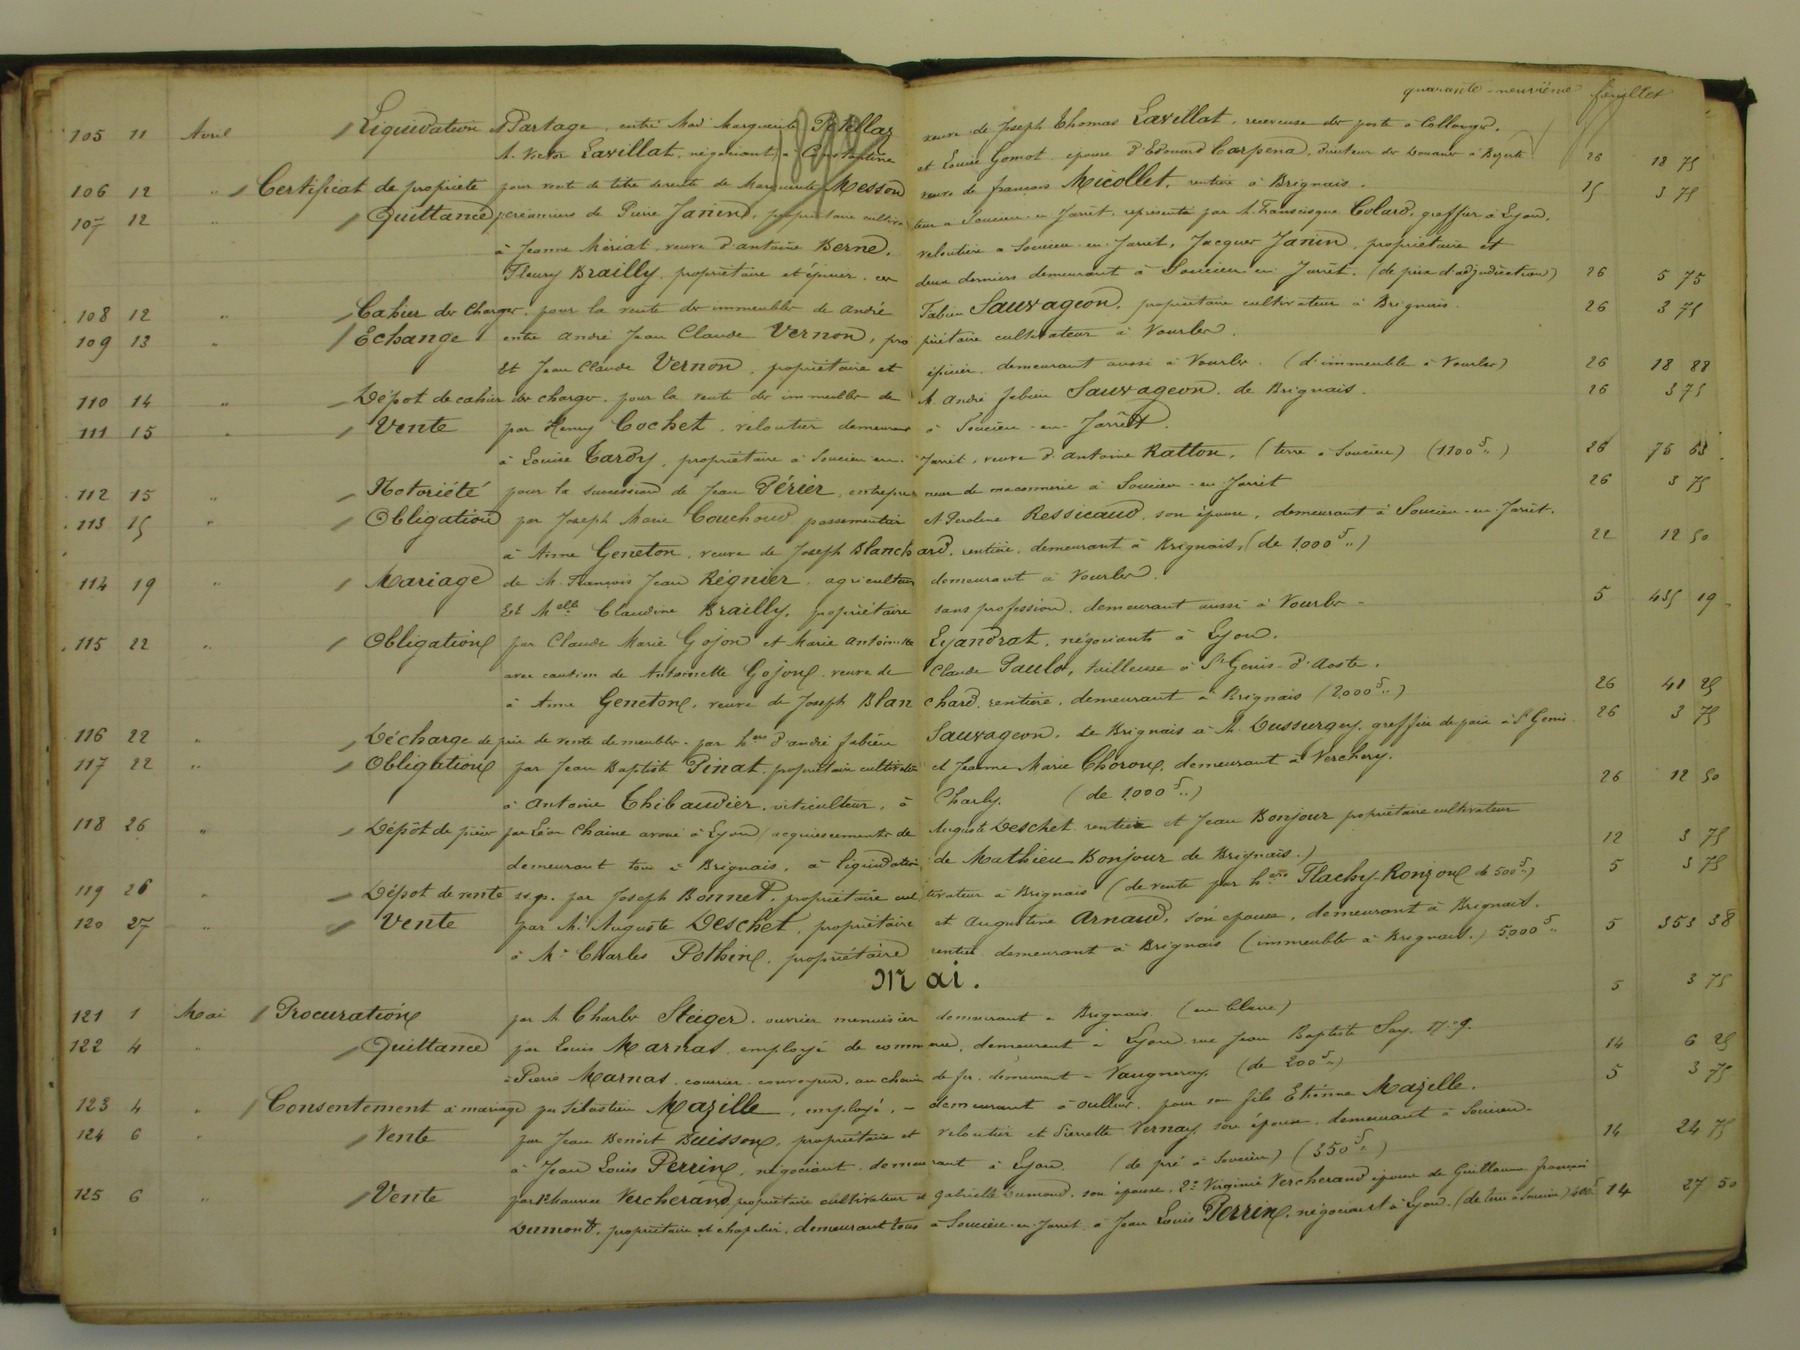 quarante-neuvième feuillet
105 11 Avril Liquidation et Partage, entre Mad. Marguerite Petellaz veuve de Joseph Thomas Lavillat, receveuse des postes à Collonges.
M. Victor Lavillat, négociant, à Constantine et Louise Gomot épouse d'Edouard Carpena, directeur des Douanes à Bizerte 26 18 75
106 12 " Certificat de propriété pour vente de titre de rente de Marguerite Messon veuve de françois Micollet, rentière à Brignais. 15 3 75
107 12 " Quittance, créanciers de Pierre Janin, propriétaire cultivateur à Soucieu-en-Jarrêt, représenté par M. Francisque Colard, greffier à Lyon.
à Jeanne Mériat, veuve d'antoine Berne, veloutière à Soucieu-en-Jarret, Jacques Janin, propriétaire et
Fleury Brailly, propriétaire et épicier, ces deux derniers demeurant à Soucieu-en-Jarrêt. (de prix d'adjudication) 26 5 75
108 12 " Cahier des Charges, pour la vente des immeubles de André Fabien Sauvageon, propriétaire cultivateur à Brignais. 26 3 75
109 13 " Echange entre André Jean Claude Vernon, propriétaire cultivateur à Vourles.
Et Jean Claude Vernon, propriétaire et épicier, demeurant aussi à Vourles. (d'immeubles à Vourles) 26 18 88
110 14 " Dépôt de cahier des charges, pour la vente des immeubles de M. André fabien Sauvageon, de Brignais. 26 3 75
111 15 " Vente par Henry Cochet, veloutier demeurant à Soucieu-en-Jarrêt.
à Louise Tardy, propriétaire à Soucieu-en-Jarret, veuve d'Antoine Ratton, (terre à Soucieu) (1100 f ") 26 75 63
112 15 " Notoriété pour la succession de Jean Périer, entrepreneur de maconnerie à Soucieu-en-Jarrêt 26 3 75
113 15 " Obligation par Joseph Marie Couchoud passementier et Ressicaud, son épouse, demeurant à Soucieu-en-Jarrêt.
à Anne Geneton, veuve de Joseph Blanchard, rentière, demeurant à Brignais, (de 1,000 f ") 22 12 50
114 19 " Mariage de M. François Jean Régnier, agriculteur demeurant à Vourles.
Et Melle Claudine Brailly, propriétaire sans profession, demeurant aussi à Vourles - 5 435 19
115 22 " Obligation par Claude Marie Gojon et Marie Antoinette Eyandrat, négociants à Lyon.
avec caution de Antoinette Gojon, veuve de Claude Paulo, tailleuse à St Genis-d'Aoste.
à Anne Geneton, veuve de Joseph Blanchard, rentière, demeurant à Brignais (2,000 f ") 26 41 25
116 22 " Décharge de prix de vente de meubles, par hers d'andré fabien Sauvageon, de Brignais à M. Dussurgey, greffier de paix à St Genis 26 3 75
117 22 " Obligation par Jean Baptiste Pinat, propriétaire cultivateur et Jeanne Marie Choron, demeurant à Verchery.
à Antoine Thibaudier, viticulteur, à Charly. (de 1,000 f ") 26 12 50
118 26 " Dépôt de pièces par Léon Chaine avoué à Lyon (acquiescements de Auguste Deschet rentier et Jean Bonjour propriétaire cultivateur
demeurant tous à Brignais, à liquidation de Mathieu Bonjour de Brignais.) 12 3 75
119 26 " Dépôt de vente s.s.p. par Joseph Bonnet, propriétaire cultivateur à Brignais (de vente par hers Flachy-Ronzon de 500 f ") 5 3 75
120 27 " Vente par M. Auguste Deschet, propriétaire et Augustine Arnaud, son épouse, demeurant à Brignais.
à Mr Charles Pothin, propriétaire rentier demeurant à Brignais (immeubles à Brignais.) 5,000 f " 5 353 38
Mai.
121 1 Mai Procuration par M. Charles Steiger, ouvrier menuisier demeurant à Brignais. (en blanc) 5 3 75
122 4 " Quittance par Louis Marnas, employé de commerce, demeurant à Lyon rue Jean Baptiste Say, no 9.
à Pierre Marnas, courrier-convoyeur, au chemin de fer, demeurant à Vaugneray. (de 200 f ") 14 6 25
123 4 " Consentement à mariage par Sébastien Mazille, employé, demeurant à Oullins, pour son fils Etienne Mazille. 5 3 75
124 6 " Vente par Jean Benoît Buisson, propriétaire et veloutier et Pierrette Vernay son épouse, demeurant à Soucieu.
à Jean Louis Perrin, négociant, demeurant à Lyon. (de pré à Soucieu) (350 f ") 14 24 75
125 6 " Vente par 1° Maurice Vercherand propriétaire cultivateur et gabrielle Dumond, son épouse, 2° Virginie Vercherand épouse de Guillaume françois
Dumont, propriétaire et chapelier, demeurant tous à Soucieu-en-Jarret à Jean Louis Perrin, négociant à Lyon. (de terre à Soucieu) 14 27 50